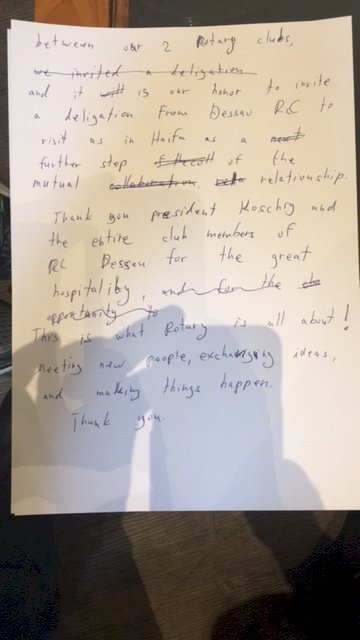 between our 2 Rotary clubs,
we invited a deligation
and it will is our honor to invite
a deligation from Dessau RC to
visit us in Haifa as a next
further step of the coll of the
mutual collaboration. rela relationship.
Thank you president Koschig and
the entire club members of
RC Dessau for the great
hospitality, and for the
opportunity to
This is what Rotary is all about!
meeting new people, exchanging ideas,
and making things happen.
Thank you.